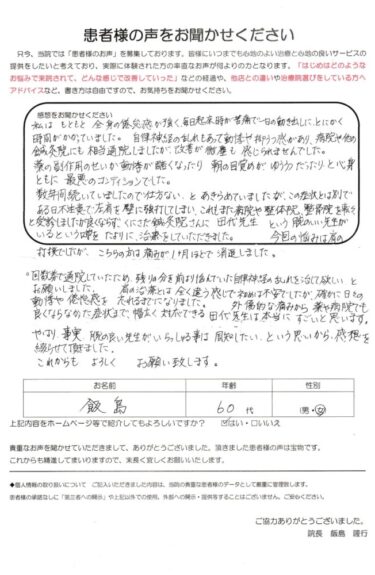 患者様の声をお聞かせください
只今、当院では「患者様のお声」を募集しております。皆様にいつまでも心地のよい治療と心地の良いサービスの
提供をしたいと考えており、実際に体験された方の率直なお声が何よりの力となります。「はじめはどのような
お悩みで来院されて、どんな感じで改善していった」などの経過や、他店との違いや治療院選びをしている方へ
アドバイスなど、書き方は自由ですので、お気持ちをお聞かせください。
感想をお聞かせください
私は もともと 全身の倦怠感が強く、毎日起床時が苦痛で一日の動き出しに、とにかく
時間がかかっていました。自律神経の乱れもあって動悸や抑うつ感があり、病院や他の
鍼灸院にも相当通院しましたが、改善が微塵も感じられませんでした。
薬の副作用のせいか動悸が酷くなったり 朝の目覚めがゆううつだったりと心身
ともに 最悪のコンディションでした。
数年間続いていましたので仕方ない、とあきらめていましたが、この症状とは別で
ある日不注意で左肩を壁に強打してしまい、これもまた病院や整体院、整骨院を転々
と受診しましたが良くならず、くにさだ鍼灸院さんに 田代先生 という腕のいい先生が
いるという噂を たよりに、治療をしていただきました。 今回の悩みは肩の
打撲でしたが、こちらの方は痛みが1ヶ月ほどで消退しました。
回数券で通院していたため、残りの分を前より悩んでいた自律神経の乱れを治して欲しい と
お願いしました。 肩の治療とは 全く違う感じで初めは不安でしたが、確かに日々の
動悸や 倦怠感を 忘れるまでになりました。 外傷的な痛みから薬や病院でも
良くならなかった症状まで、幅広く対応できる 田代先生は本当に すごいと思います。
やはり、事実 腕の良い先生がいらっしゃる事は 周知したい、という思いから、感想を
綴らせて頂きました。
これからも よろしく お願い致します。
お名前 年齢 性別
飯島 60代 (男・女)
上記内容をホームページ等で紹介してもよろしいですか? ☑はい・□いいえ
貴重なお声を聞かせていただきまして、ありがとうございました。頂きました患者様の声は宝物です。
これからも精進してまいりますので、末長く宜しくお願いいたします。
◆個人情報の取り扱いについて ご記入いただきました内容は、当院の貴重な患者様のデータとして厳重に管理致します。
患者様の承諾なしに「第三者への開示」や上記以外での使用、外部への開示・提供等することはございません。ご安心ください。
ご協力ありがとうございました。
院長 飯島 隆行